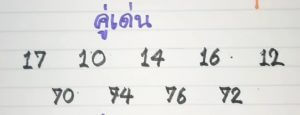 คู่เด่น
17 10 14 16 12
70 74 76 72